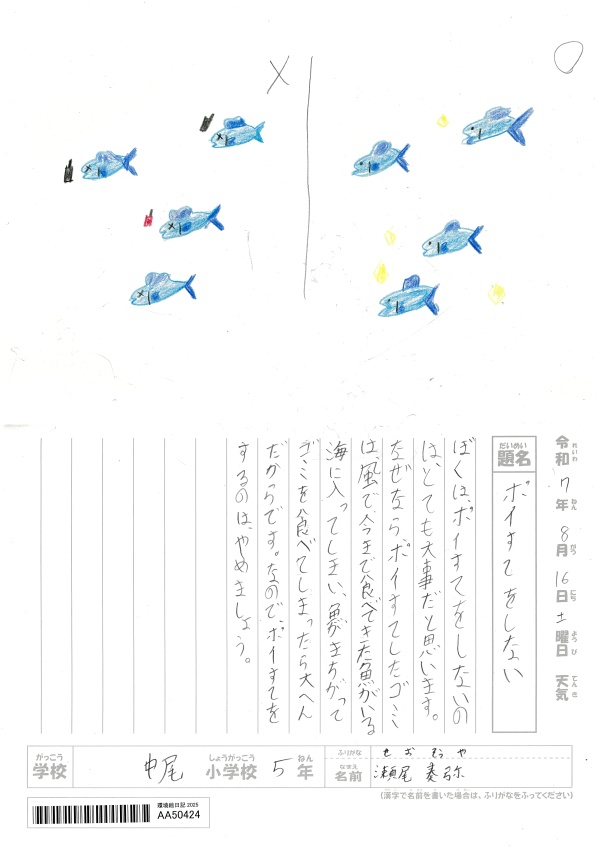 ×
○
令和7年8月16日土曜日 天気
れいわ ねん がつ にち ようび てんき
だいめい
題名
ポイすてをしない
ぼくは、ポイすてをしないの
は、とても大事だと思います。
なぜなら、ポイすてしたゴミ
は、風で、今まで食べてきた魚がいる
海に入ってしまい、魚がまちがって
ゴミを食べてしまったら大へん
だからです。なので、ポイすてを
するのは、やめましょう。
がっこう しょうがっこう ねん
学校 中尾 小学校 5年
ふりがな せお
なまえ
名前 瀬尾
(漢字で名前を書いた場合は、ふりがなをふってください)
環境絵日記 2025
AA50424